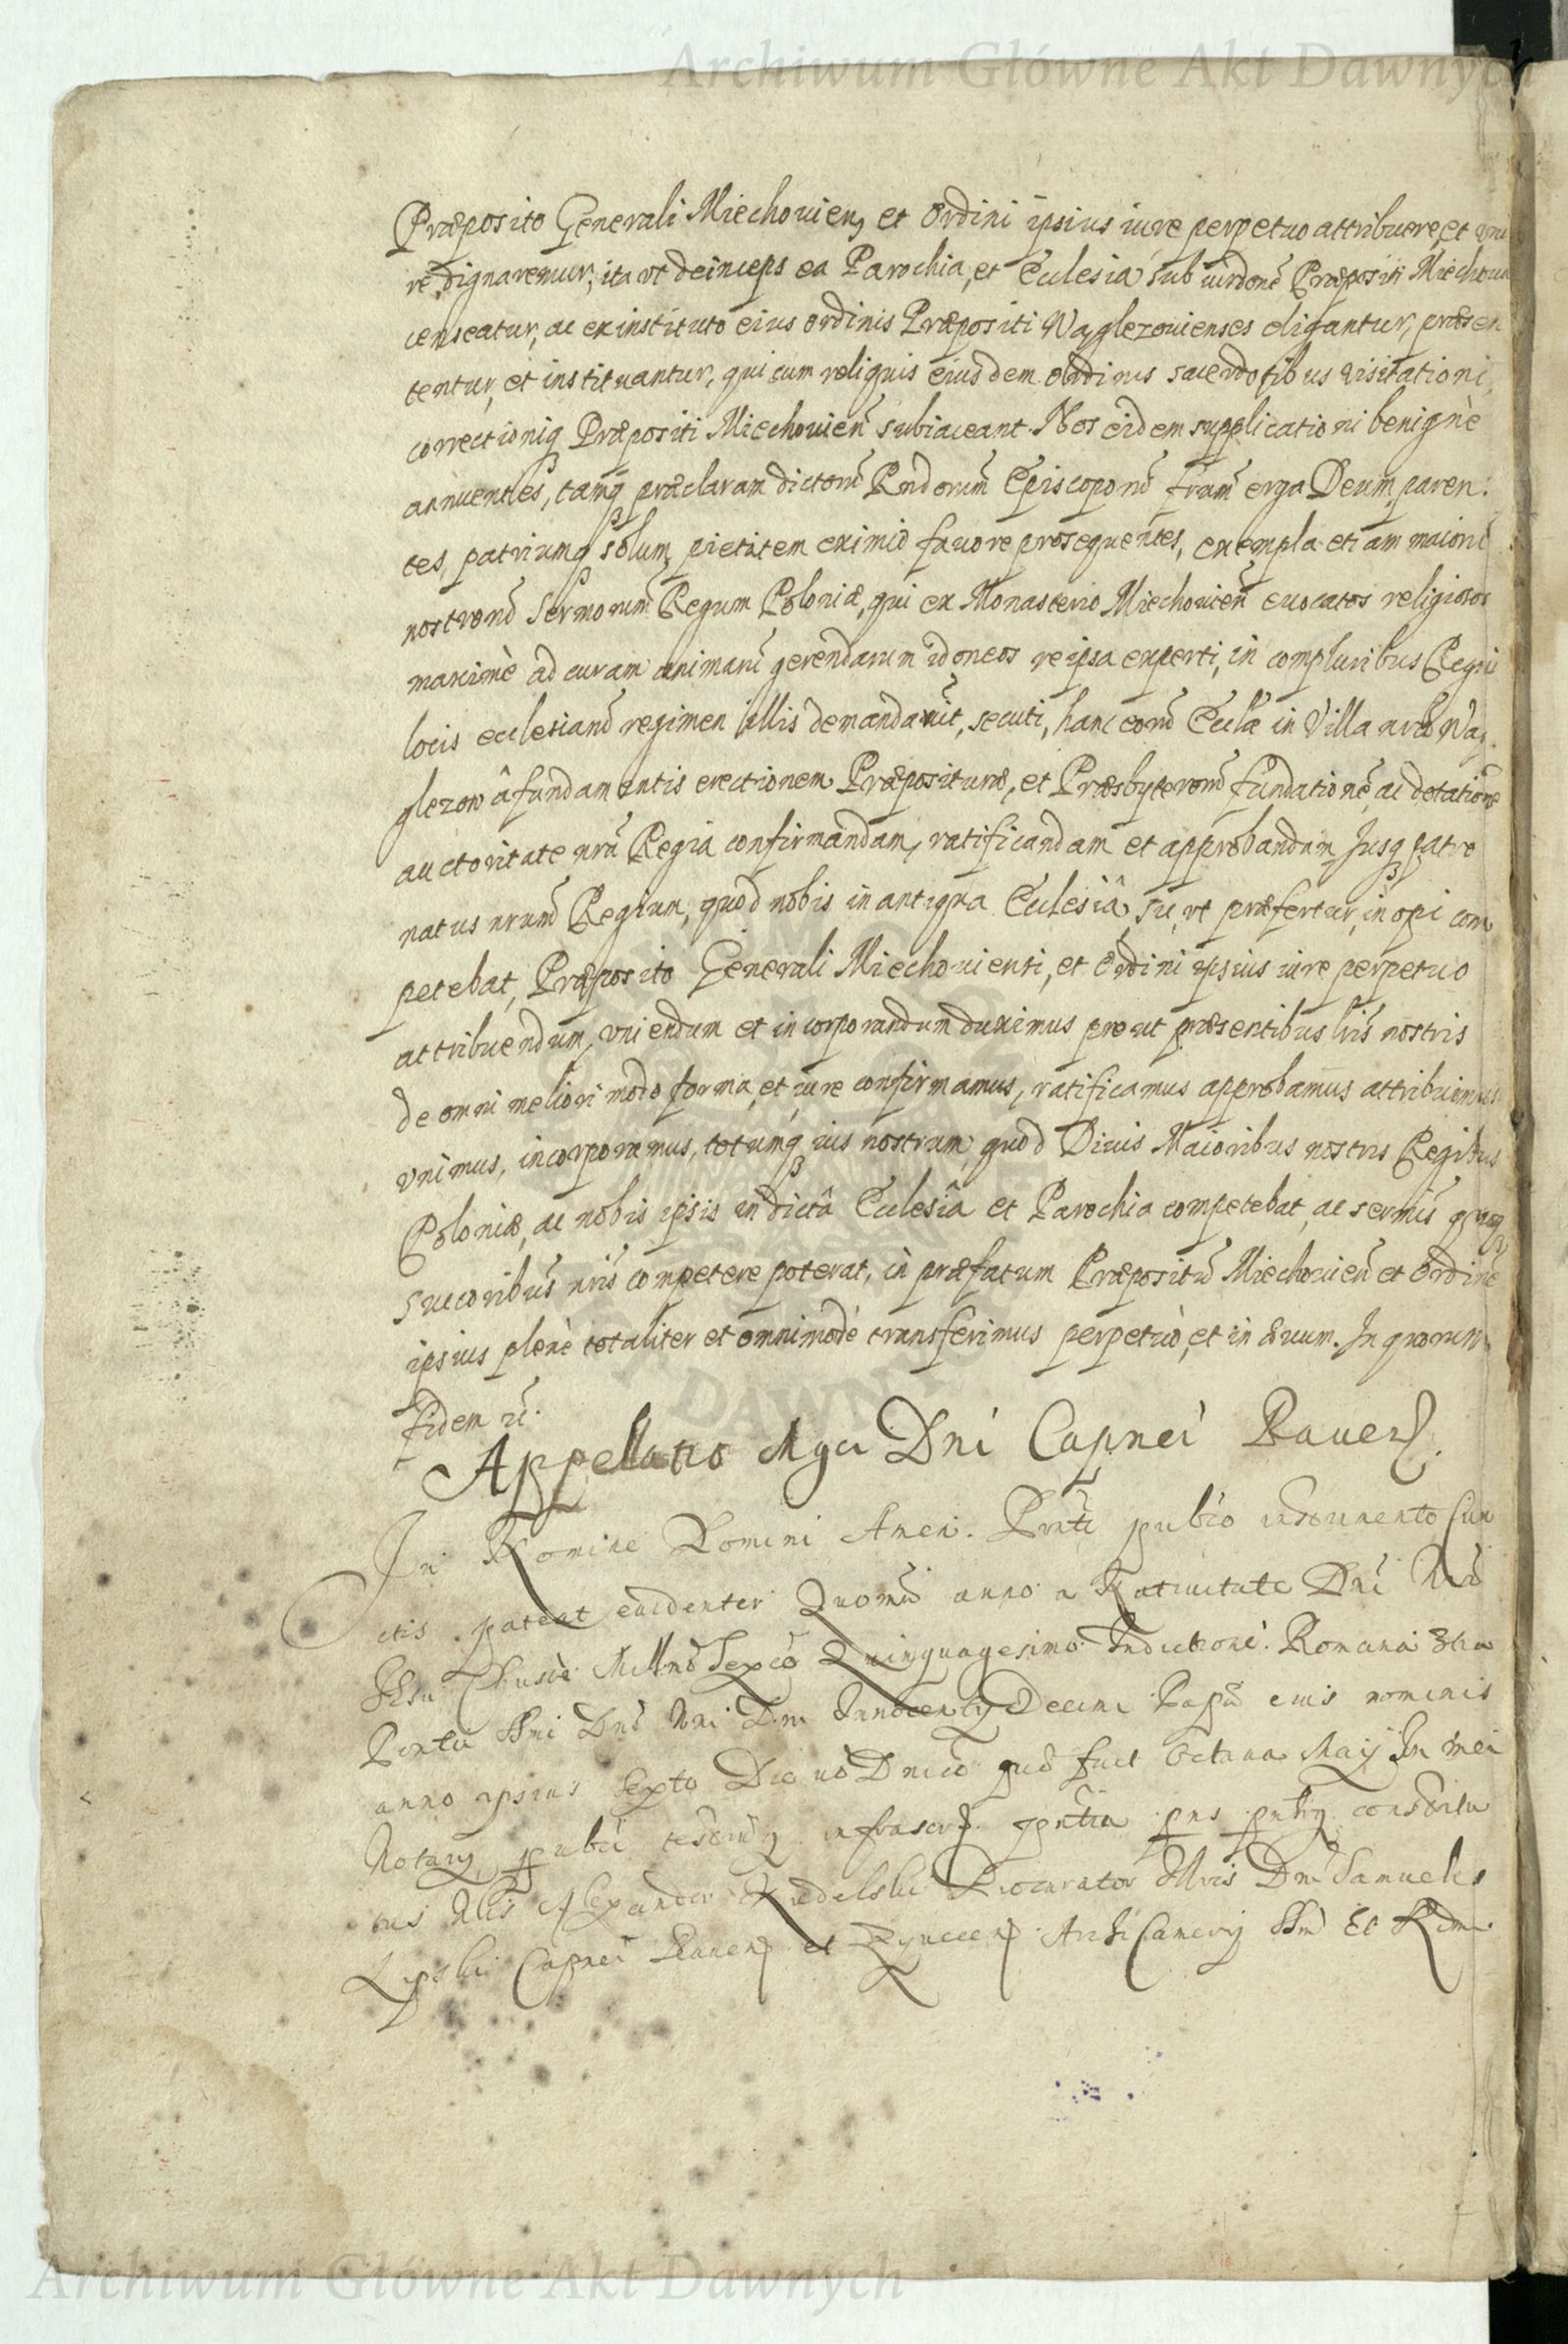 Archiwum Główne Akt Dawnych
Præposito Generali Miechouien, et Ordini ipsius iure perpetuo attribuere, et vni
re, dignaremur, ita vt deinceps ea Parochia, et Ecclesia sub iurdone Præpositi Miechouien
censeatur, ac ex instituto eius ordinis Præpositi Waglezouienses eligantur, præsen
tentur, et instituantur, qui cum reliquis eiusdem ordinis sacerdotibus visitationi,
correctioniq Præpositi Miechouien subiaceant. Nos eidem supplicationi benignè
annuentes, tamq præclaram dictorũ Rndorum Episcoporũ fratrũ erga Deum, paren:
tes, patriumq solum, pietatem eximio fauore prosequentes, exempla etiam maiorũ
nostrorũ Sermorum Regum Poloniæ, qui ex Monasterio Miechouien euocatos religiosos
maximè ad curam animarũ gerendarum idoneos reipsa experti, in compluribus Regni
locis ecclesiarũ regimen illis demandarũt, secuti, hanc eorũ Ecclæ in Villa nrã Wa:
glezow â fundamentis erectionem Præpositure, et Præsbyterorũ fundationẽ, ac dotationẽ
auctoritate nrã Regia confirmandam, ratificandam et approbandam Jusq patro
natus nrum Regium, quod nobis in antiqua Ecclesiâ, su, vt præfertur, inopi com
petebat, Præposito Generali Miechouiensi, et Ordini ipsius iure perpetuo
attribuendum, vniendum et incorporandum duximus prout præsentibus lris nostris
de omni meliori modo forma, et iure confirmamus, ratificamus approbamus attribuimus
vnimus, incorporamus, totumq ius nostrum, quod Diuis Maioribus nostris Regibus
Poloniæ, ac nobis ipsis in dictâ Ecclesiâ et Parochia competebat, ac sermis
succoribus nris competere poterat, in præfatum Præpositũ Miechouieñ et Ordinẽ
ipsius plenè totaliter et omnimodè transferimus perpetuò, et in æuum. In quorum
fidem
Appellatio Mgci Dni Capnei Rauen.
In Nomine Domini Amen. Pnti publco instrumento cun
ctis pateat euidenter Quomo anno a Natiuitate Dni Nri
Jhsu Christi Millmo Sexco Quinquagesimo Indictione Romana 3tia
Pontu Smi Dni Nri Dni Innocenty Decimi Papæ eius nominis
anno ipsius Sexto Die uo Dnico quæ fuit Octaua Maij In mei
Notarij publci testiumq infrascr pntia pns pnlr constitu
tus Nlis Alexander Procurator Illris Dni Samuelis
Lipski Capnei Rauen et Archi Cancrij Smi Et Rdmi
Archiwum Główne Akt Dawnych